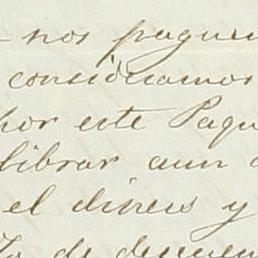 nos pagu
consideramos
por este Paqu
librar aun
el dinero y
de